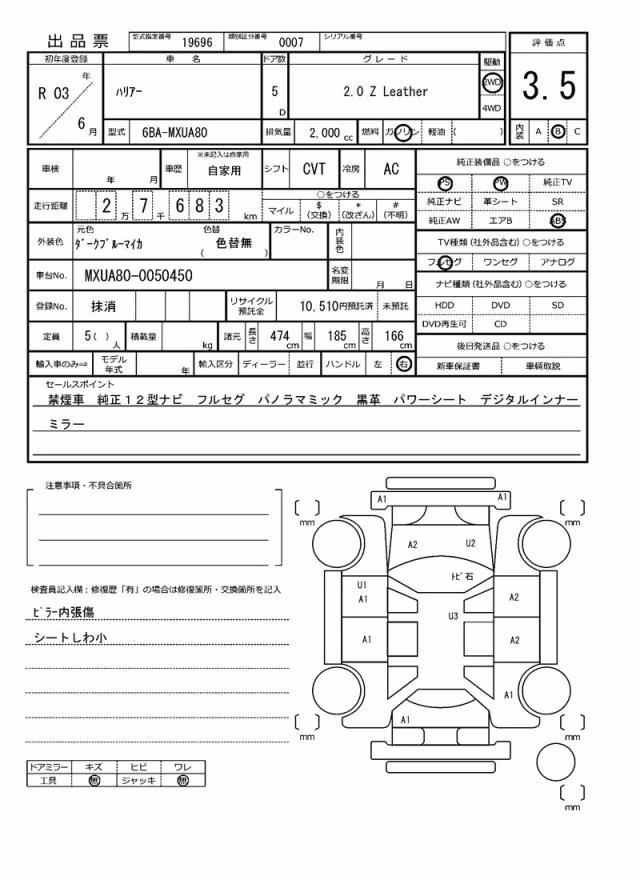 出品票
型式指定番号 19696 類別区分番号 0007 シリアル番号
評価点
3.5
内装 A B C
初年度登録 車名 ドア数 グレード 駆動
R 03 年 6 月
ﾊﾘｱｰ 5 D 2.0 Z Leather 2WD 4WD
型式 6BA-MXUA80 排気量 2,000 cc 燃料 ガソリン 軽油 ( )
車検 年 月 車歴 ※未記入は自家用 自家用 シフト CVT 冷房 AC
走行距離 2 万 7 千 6 8 3 km
○をつける
マイル $ (交換) * (改ざん) # (不明)
外装色 元色 ﾀﾞｰｸﾌﾞﾙｰﾏｲｶ 色替 ( 色替無 ) カラーNo. 内装色
車台No. MXUA80-0050450 名変期限 月 日
登録No. 抹消 リサイクル預託金 10,510円預託済 未預託
定員 5( ) 人 積載量 kg 諸元 長さ 474 cm 幅 185 cm 高さ 166 cm
輸入車のみ⇒ モデル年式 年 輸入区分 ディーラー 並行 ハンドル 左 右
純正装備品 ○をつける
PS PW 純正TV
純正ナビ 革シート SR
純正AW エアB ABS
TV種類(社外品含む) ○をつける
フルセグ ワンセグ アナログ
ナビ種類(社外品含む) ○をつける
HDD DVD SD
DVD再生可 CD
後日発送品 ○をつける
新車保証書 車輌取説
セールスポイント
禁煙車 純正12型ナビ フルセグ パノラマミック 黒革 パワーシート デジタルインナー
ミラー
注意事項・不具合箇所
検査員記入欄：修復歴「有」の場合は修復箇所・交換箇所を記入
ﾋﾟﾗｰ内張傷
シートしわ小
ドアミラー キズ ヒビ ワレ
工具 無 ジャッキ 無
A1 A1
mm mm
A2 U2
ﾄﾋﾞ石
U1
A1 A2
U3
A1 A2
A1
A1
mm mm
mm